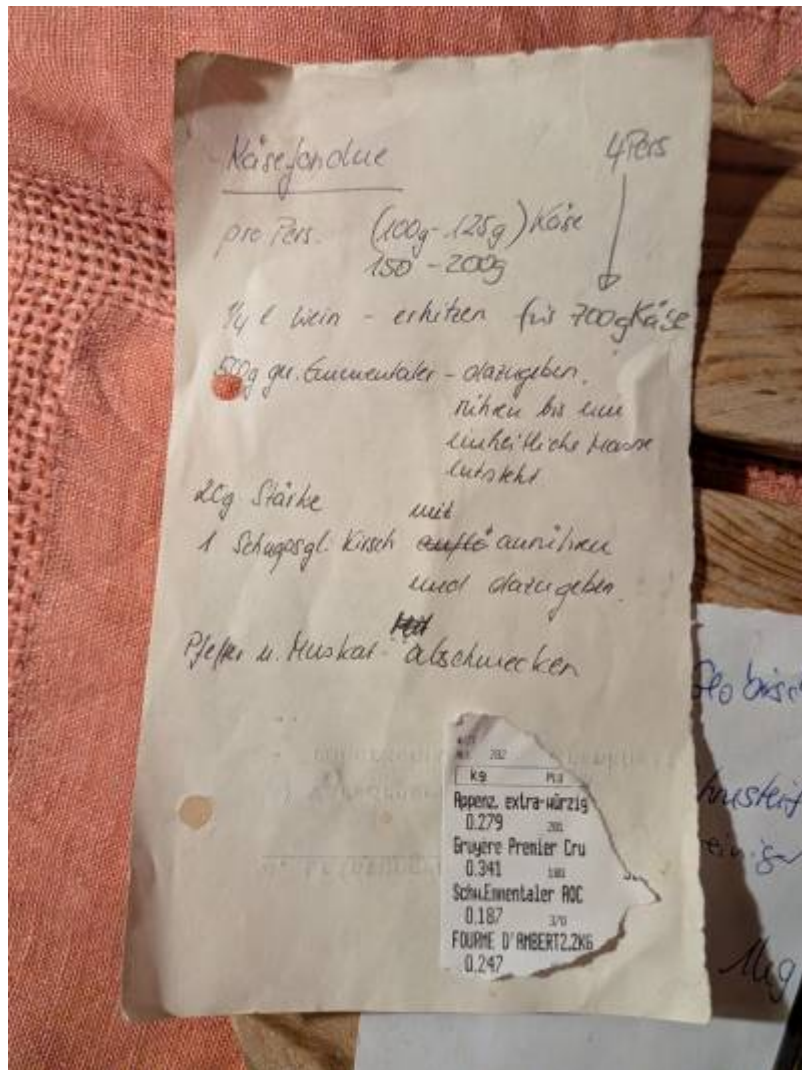 Käsefondue
4 Pers
pro Pers. (100g-125g) Käse
150 - 200g
1/4 l Wein - erhitzen für 700g Käse
500g ger. Emmentaler - dazugeben,
rühren bis eine
einheitliche Masse
entsteht
20g Stärke mit
1 Schnapsgl. Kirsch anrühren
und dazugeben.
Pfeffer u. Muskat - abschmecken
202
kg
Appenz. extra-würzig
0.279
Gruyère Premier Cru
0.341
Schw.Emmentaler AOC
0.187 370
FOURME D'AMBERT2.2KG
0.247
1kg